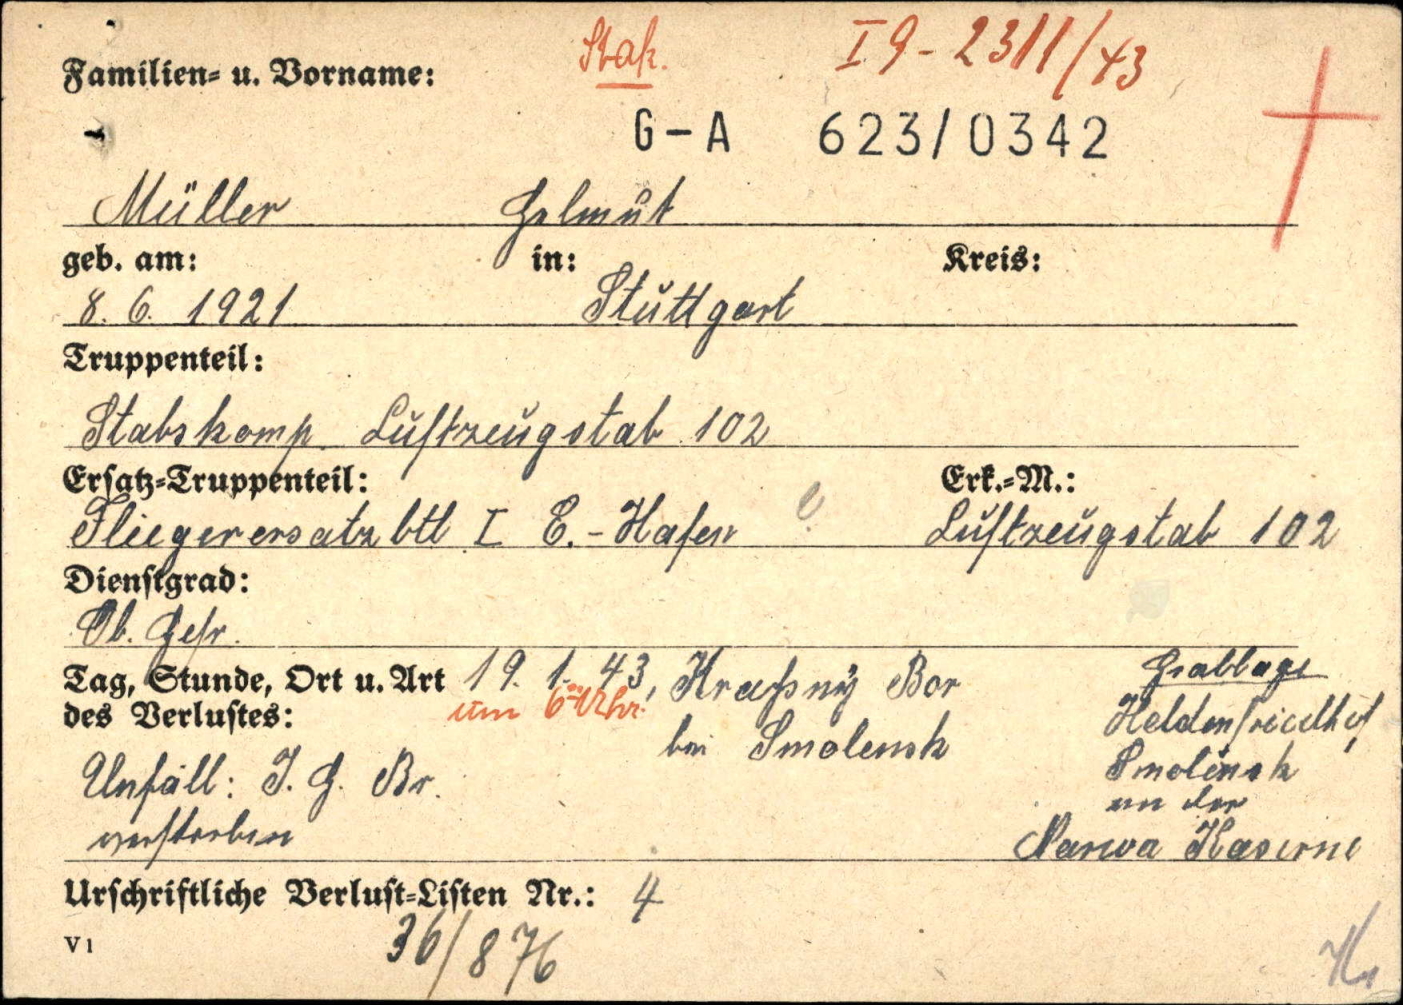 Stak. I 9 - 2311/43
Familien- u. Vorname:
G-A 623/0342
Müller Helmut
geb. am: in: Kreis:
8. 6. 1921 Stuttgart
Truppenteil:
Stabskomp. Luftzeugstab 102
Ersatz-Truppenteil: Erk.-M.:
Fliegerersatzbtl I E.-Hafen Luftzeugstab 102
Dienstgrad:
Ob. Gefr.
Tag, Stunde, Ort u. Art 19. 1. 43, Kraßny Bor
des Verlustes: um 6 Uhr. bei Smolensk
Grablage
Heldenfriedhof
Smolensk
an der
Narwa Kaserne
Unfall: I. G. Br.
verstorben
Urschriftliche Verlust-Listen Nr.: 4
V1 36/876